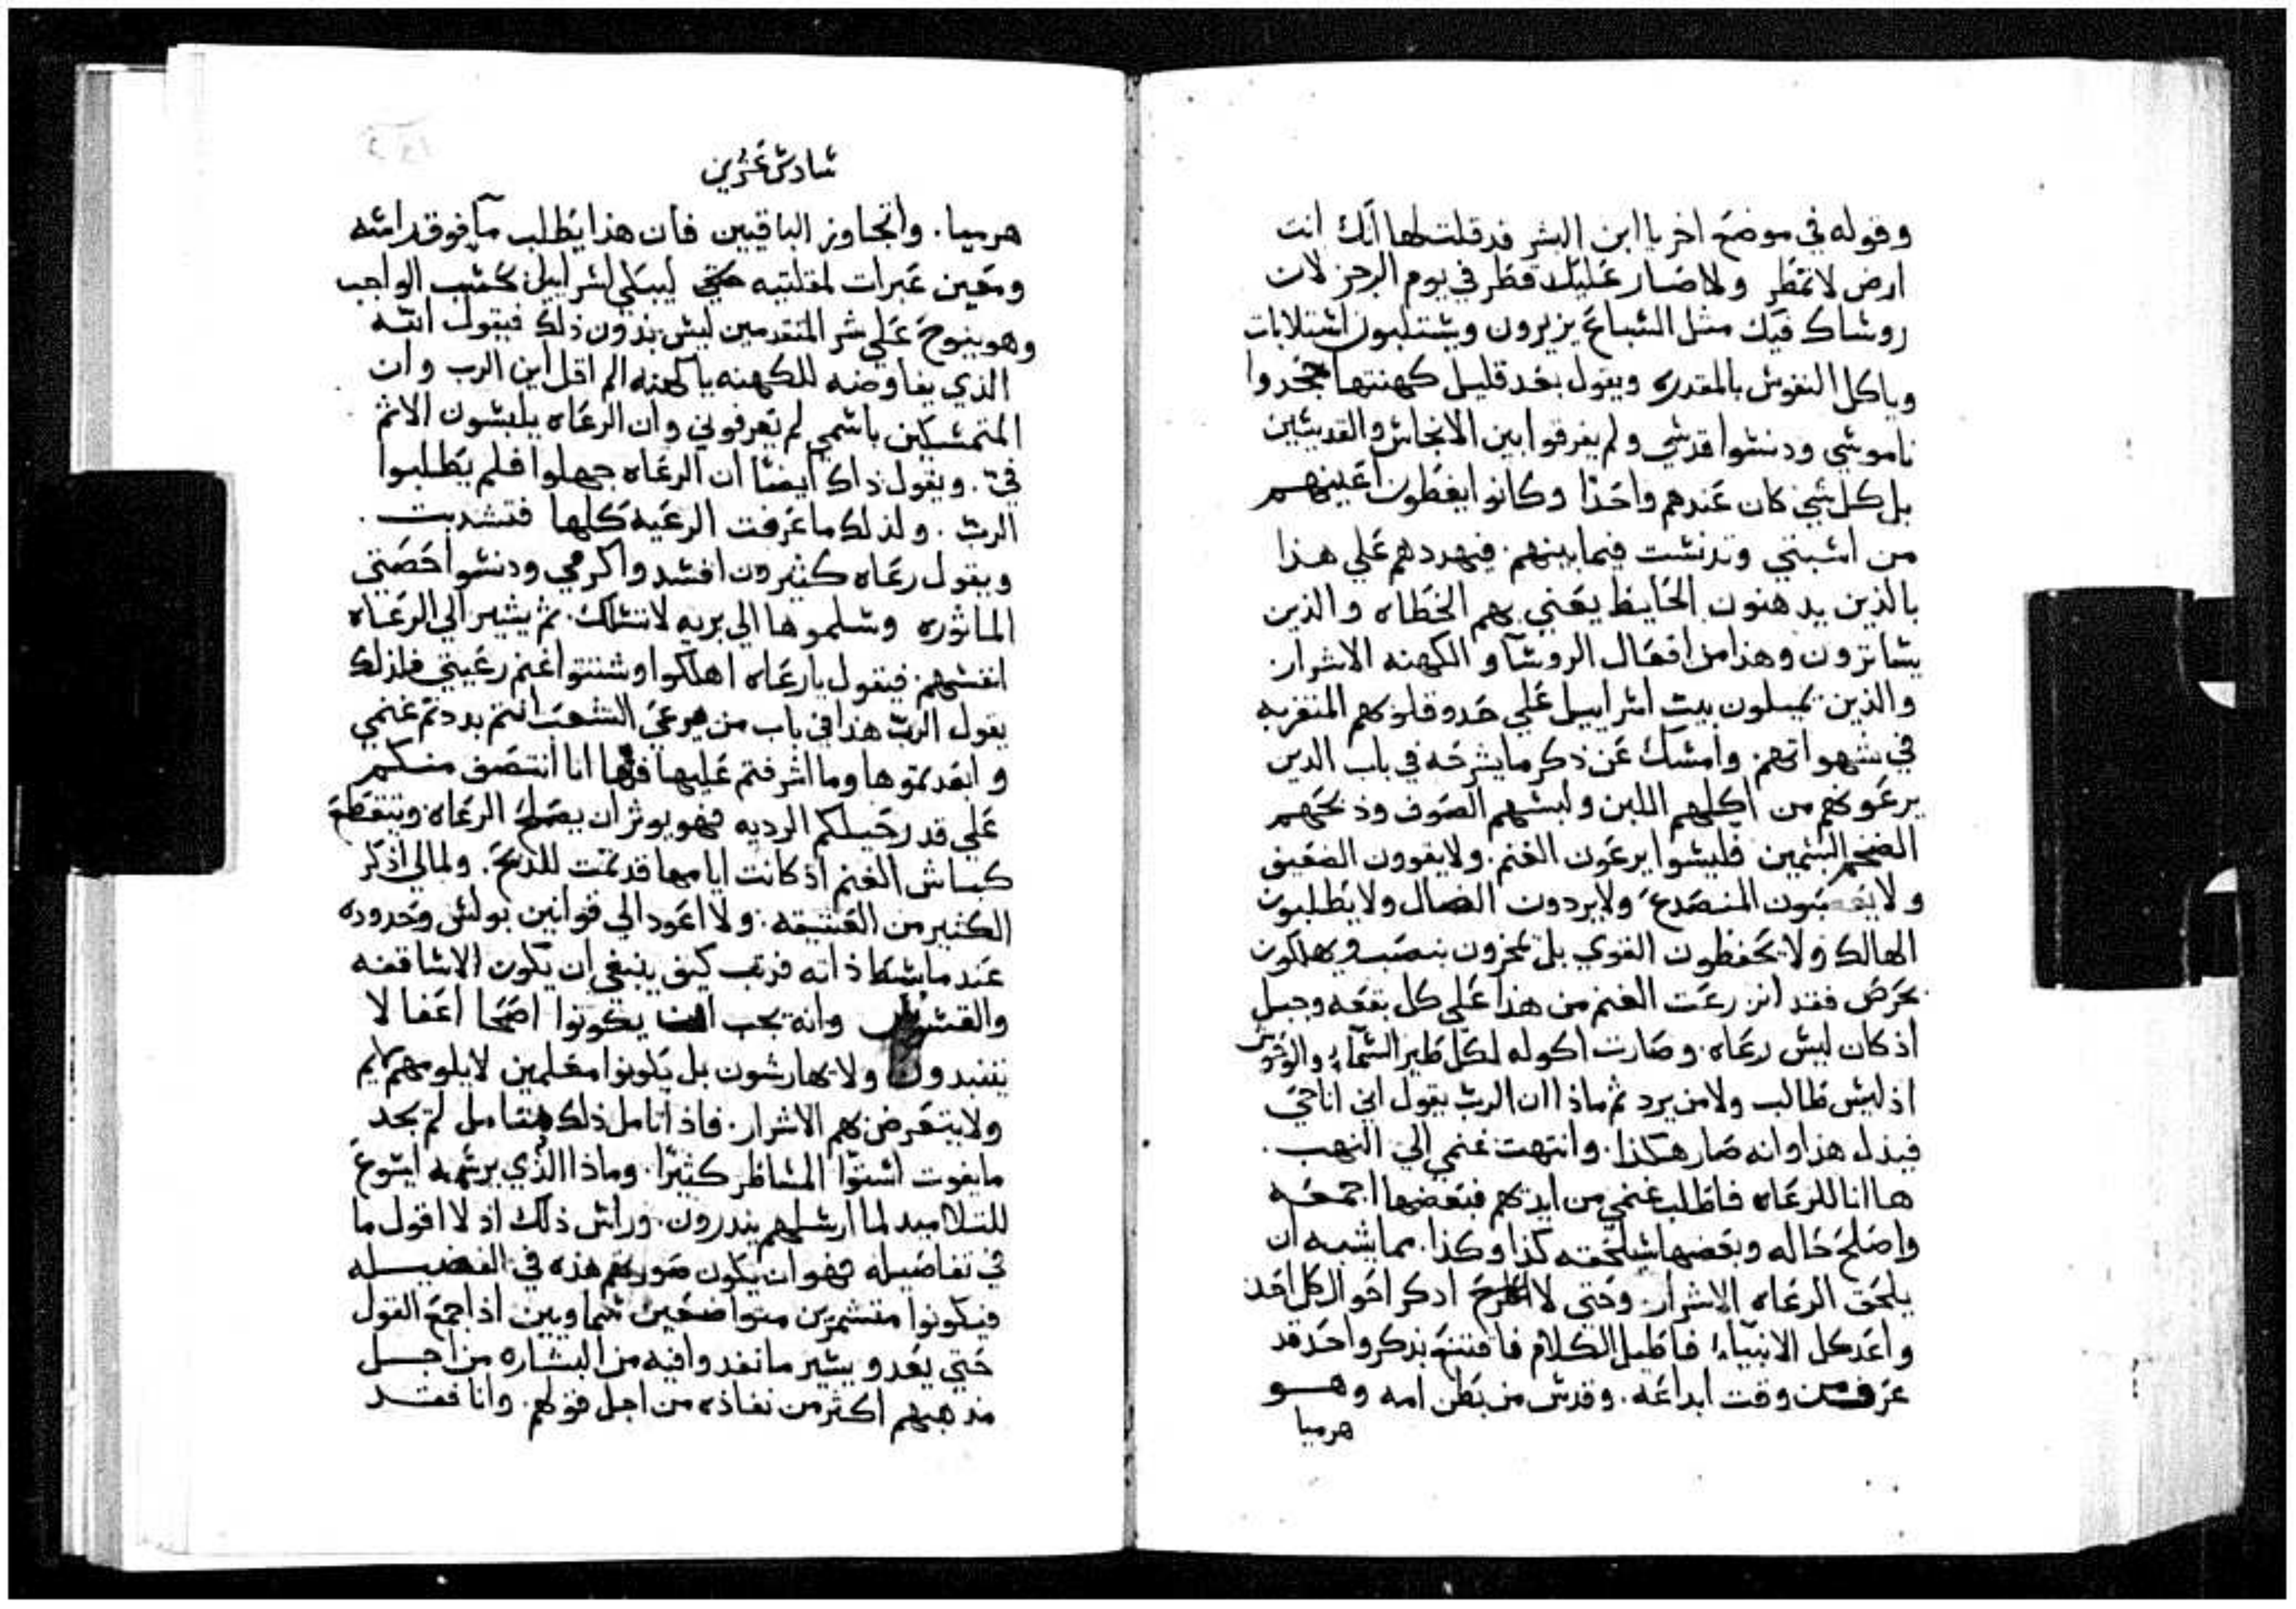 وقوله في موضع اخر يا ابن البشر قد قلت لها انك انت
ارض لا تمطر ولا صار عليك قطر في يوم الرجز لان
روساك فيك مثل السباع يزيرون ويستلبون استلابات
وياكل النفوس بالمقدره ويقول بعد قليل كهنتها جحدوا
ناموسي ودنسوا قدسي ولم يفرقوا بين الانجاس والقديسين
بل كل شي كان عندهم واحدًا وكانوا يغطون اعينهم
من اسبتي وتدنست فيما بينهم. فيهددهم علي هذا
بالذين يدهنون الحايط يعني بهم الخطاه والذين
يساترون وهذا من افعال الروسآ و الكهنه الاشرار.
والذين يميلون بيت اسراييل علي حدو قلوبهم المتغربه
في شهواتهم. وامسك عن ذكر ما يشرحه في باب الذين
يرعونهم من اكلهم اللبن ولبسهم الصوف وذبحهم
الضخم السمين فليسوا يرعون الغنم. ولا يقوون الضعيف
ولا يعصبون المنصدع ولا يردون الضال ولا يطلبون
الهالك ولا يحفظون القوي بل يخزون بنصب ويهلكون
بحرص فقد انزرعت الغنم من هذا علي كل بقعه وجبل
اذ كان ليس رعاه. وصارت اكوله لكل طير السماء والوحوش
اذ ليس طالب ولا من يرد ثم ماذا ان الرب يقول اني انا حي
فبذل هذا وانه صار هكذا. وانتهت غنمي الي النهب.
ها انا للرعاه فاطلب غنمي من ايديهم فبعضها اجمعه
واصلح حاله وبعضها سيلحقه كذا وكذا. مما يشبه ان
يلحق الرعاه الاشرار. وحتي لا اذكر احوال كل احد
واعد كل الانبياء فاطيل الكلام فاقتنع بذكر واحد قد
عرف من وقت ابداعه. وقدس من بطن امه وهو
هرميا
سادس عشرين
هرميا. واتجاوز الباقيين فان هذا يطلب مآ فوق راسه
ومعين عبرات لمقلتيه حتي ليبكي اسراييل كحسب الواجب
وهو ينوح علي شر المتقدمين ليس بدون ذلك فيقول الله
الذي يفاوضه للكهنه يا كهنه الم اقل اين الرب وان
المتمسكين باسمي لم يعرفوني وان الرعاه يلبسون الاثم
في. ويقول ذاك ايضا ان الرعاه جهلوا فلم يطلبوا
الرب. ولذلك ما عرفت الرعيه كلها فتشدبت.
ويقول رعاه كثيرون افسدوا كرمي ودنسوا حصتي
الماثوره وسلموها الي بريه لا تسلك. ثم يشير الي الرعاه
انفسهم. فيقول يا رعاه اهلكوا وشتتوا غنم رعيتي فلذلك
يقول الرب هذا في باب من يرعي الشعب انتم بددتم غنمي
وابعدتموها وما اشرفتم عليها فها انا انتصف منكم
علي قدر حيلكم الرديه فهو يوثر ان يصلح الرعاه وتنقطع
كباش الغنم اذ كانت ايامها قد تمت للذبح. ولما لي اذكر
الكثير من العتيقه. ولا اعود الي قوانين بولس وحدوده
عند ما بسط ذاته فرتب كيف ينبغي ان يكون الاساقفه
والقسوس وانه يجب ان يكونوا اصحا اعفا لا
ينتبدون ولا يهارشون بل يكونوا معلمين لا يلومهم لايم
ولا يتعرض بهم الاشرار. فاذا تامل ذلك متامل لم يجد
ما يفوت استوا المساطر كثيرًا. وماذا الذي يرسمه ايسوع
للتلاميد لما ارسلهم ينذرون. وراس ذلك اذ لا اقول ما
في تفاصيله فهو ان يكون صورتهم هذه في الفضيله
فيكونوا متشمرين متواضعين سماويين اذ اجمع القول
حتي يغدو يسير ما نفدوا فيه من البشاره من اجل
مذهبهم اكثر من نفاذه من اجل قولهم. وانا فقد